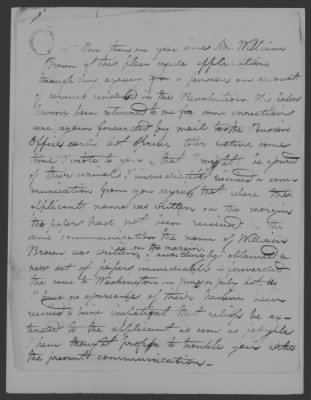 More than one year since Mr William
Brown of this place made application
through my agency for a pension on account
of services rendered in the Revolution. His papers
having been returned to me for some corrections
were again forwarded by mail to the Pension
Office early last Spring. After waiting some
time I wrote to you that I might be apprised
of their arrival. I immediately received a com-
munication from you saying that where the
applicants name was written on the margin
the papers had not been received. In the
same communication the name of William
Brown was written on the margin. I accordingly obtained a
new set of papers immediately & forwarded
the same to Washington in June or July last. As
I have no assurance of their having been
received & being impatient that relief be ex-
tended to the applicant as soon as possible
I have thought proper to trouble you with
the present communication.